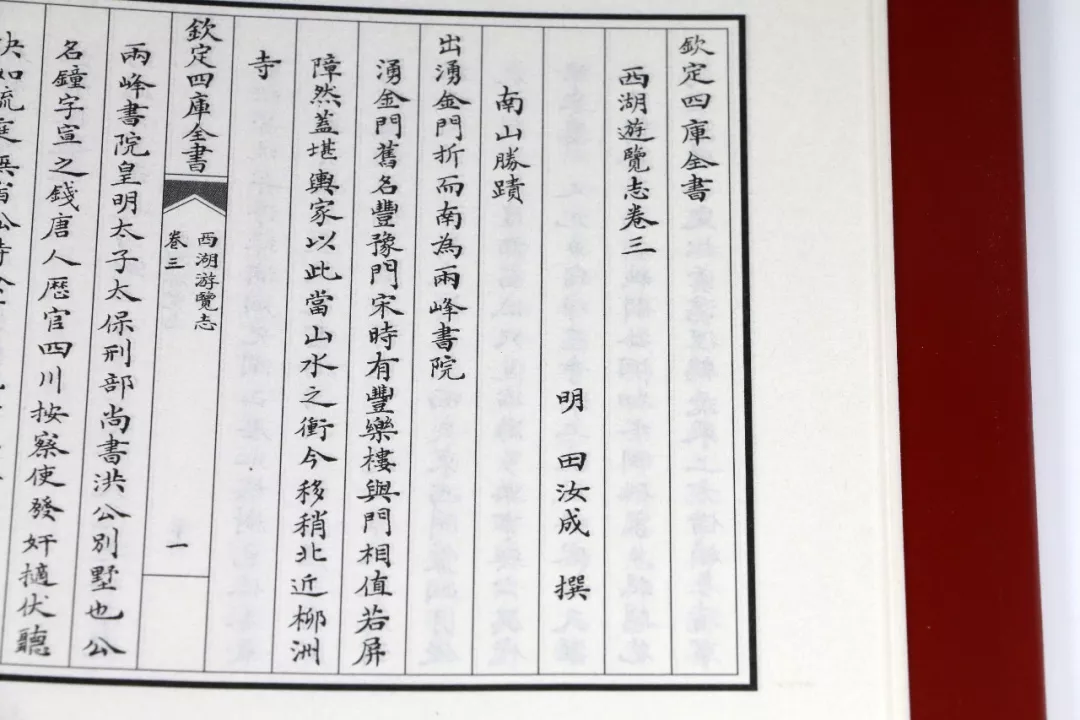 欽定四庫全書
西湖遊覽志卷三
明 田汝成 撰
南山勝蹟
出湧金門折而南為兩峰書院
湧金門舊名豐豫門宋時有豐樂樓與門相值若屏
障然蓋堪輿家以此當山水之衝今移稍北近柳洲
寺
欽定四庫全書
西湖遊覽志
卷三
一
兩峰書院皇明太子太保刑部尚書洪公別墅也公
名鐘字宣之錢唐人歷官四川按察使發奸擿伏聽
決如流庭無